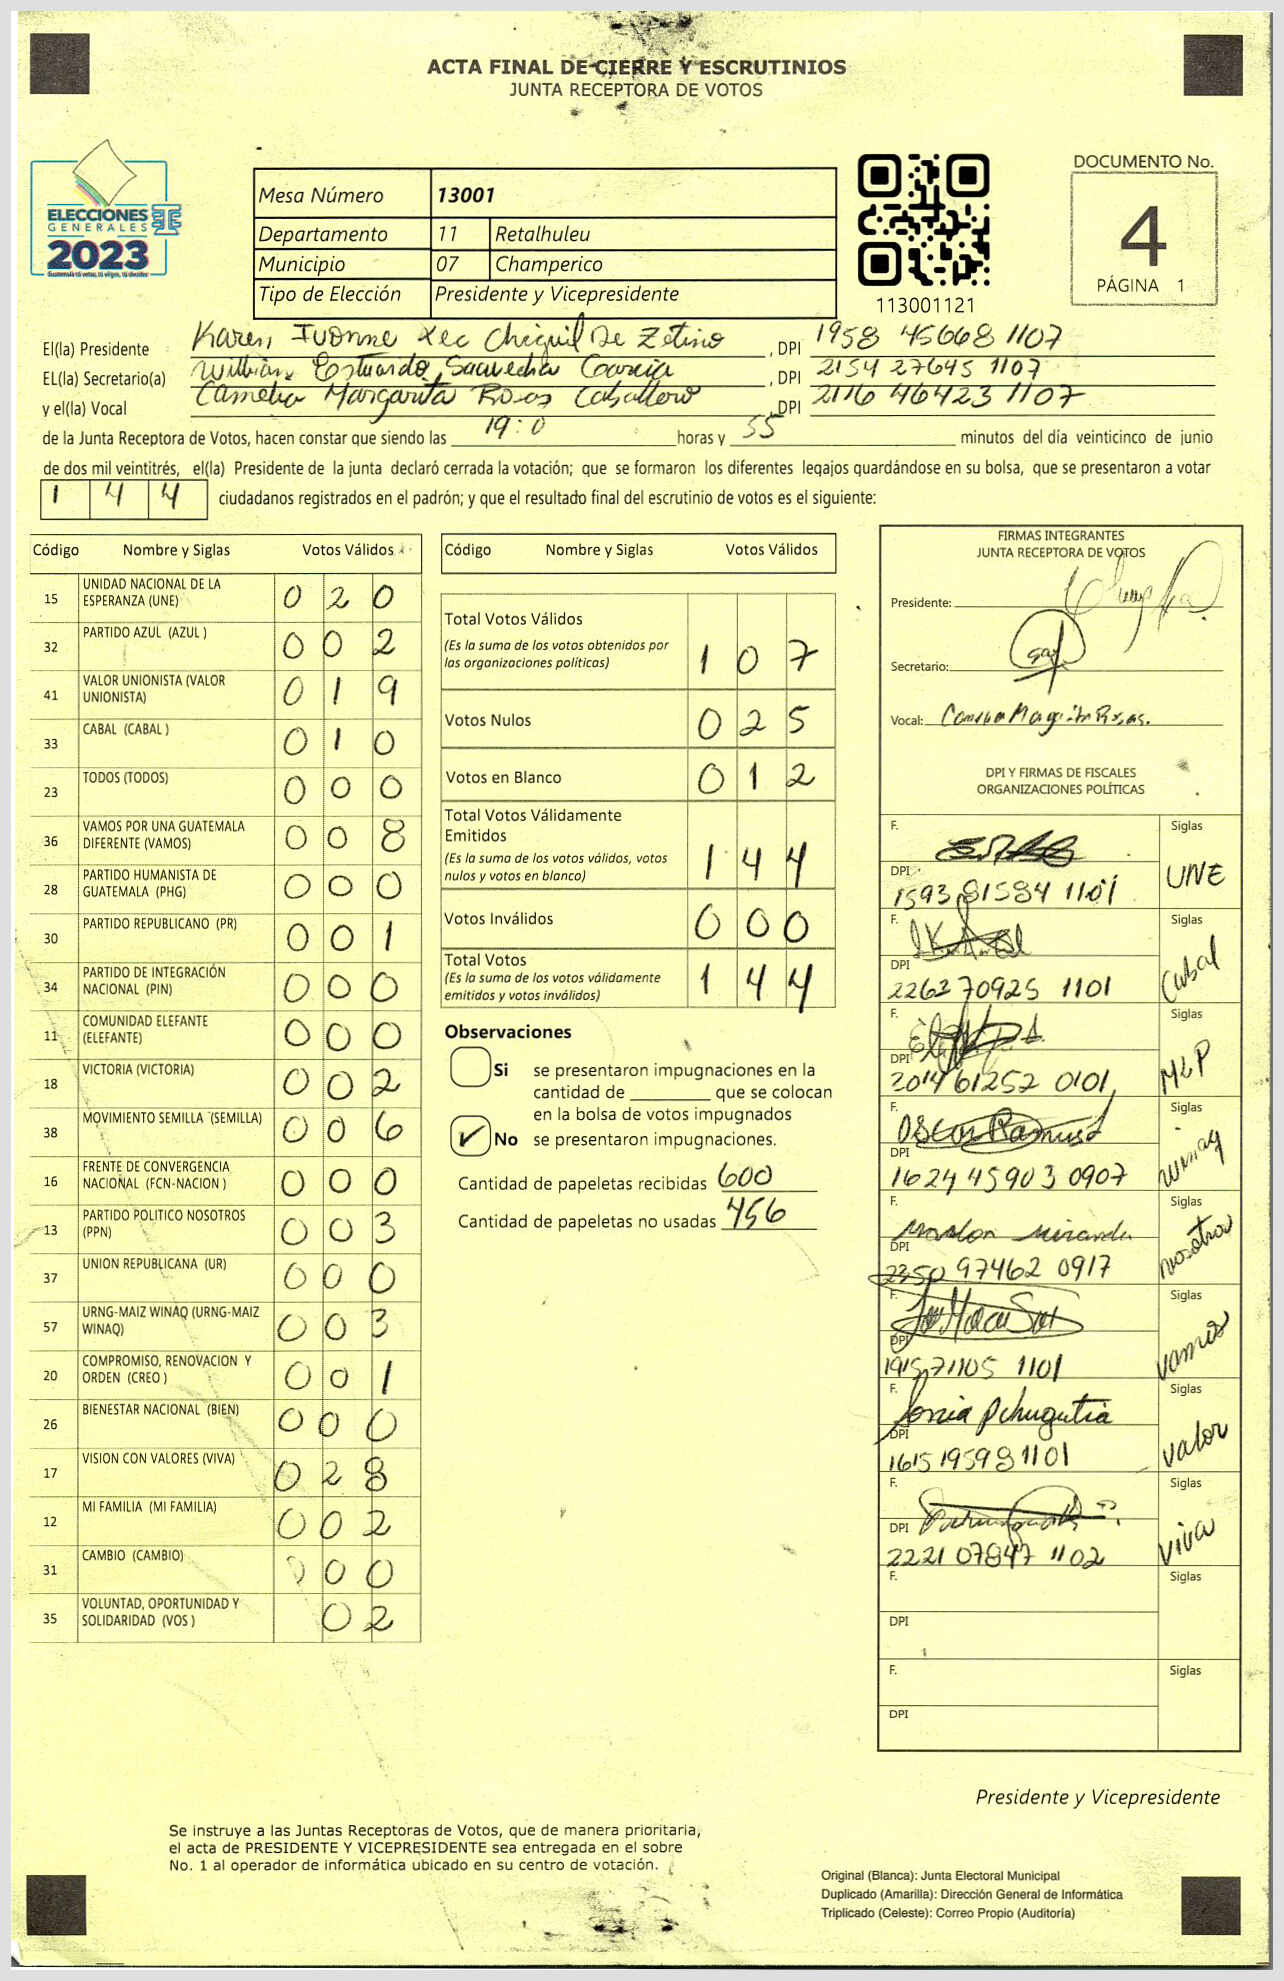 ACTA FINAL DE CIERRE Y ESCRUTINIOS
JUNTA RECEPTORA DE VOTOS
ELECCIONES
GENERALES
2023
Mesa Número 13001
Departamento 11 Retalhuleu
Municipio 07 Champerico
Tipo de Elección Presidente y Vicepresidente
113001121
DOCUMENTO No.
4
PÁGINA 1
El(la) Presidente Karen Ivonne Xec Chiquil De Zetino , DPI 1958 45668 1107
EL(la) Secretario(a) Willian Estuardo Saavedra Garcia , DPI 2154 27645 1107
y el(la) Vocal Camelia Margarita Rosas Caballero , DPI 2116 46423 1107
de la Junta Receptora de Votos, hacen constar que siendo las 19:0 horas y 55 minutos del día veinticinco de junio
de dos mil veintitrés, el(la) Presidente de la junta declaró cerrada la votación; que se formaron los diferentes legajos guardándose en su bolsa, que se presentaron a votar
1 4 4 ciudadanos registrados en el padrón; y que el resultado final del escrutinio de votos es el siguiente:
Código Nombre y Siglas Votos Válidos
15 UNIDAD NACIONAL DE LA ESPERANZA (UNE) 0 2 0
32 PARTIDO AZUL (AZUL ) 0 0 2
41 VALOR UNIONISTA (VALOR UNIONISTA) 0 1 9
33 CABAL (CABAL ) 0 1 0
23 TODOS (TODOS) 0 0 0
36 VAMOS POR UNA GUATEMALA DIFERENTE (VAMOS) 0 0 8
28 PARTIDO HUMANISTA DE GUATEMALA (PHG) 0 0 0
30 PARTIDO REPUBLICANO (PR) 0 0 1
34 PARTIDO DE INTEGRACIÓN NACIONAL (PIN) 0 0 0
11 COMUNIDAD ELEFANTE (ELEFANTE) 0 0 0
18 VICTORIA (VICTORIA) 0 0 2
38 MOVIMIENTO SEMILLA (SEMILLA) 0 0 6
16 FRENTE DE CONVERGENCIA NACIONAL (FCN-NACION ) 0 0 0
13 PARTIDO POLITICO NOSOTROS (PPN) 0 0 3
37 UNION REPUBLICANA (UR) 0 0 0
57 URNG-MAIZ WINAQ (URNG-MAIZ WINAQ) 0 0 3
20 COMPROMISO, RENOVACION Y ORDEN (CREO ) 0 0 1
26 BIENESTAR NACIONAL (BIEN) 0 0 0
17 VISION CON VALORES (VIVA) 0 2 8
12 MI FAMILIA (MI FAMILIA) 0 0 2
31 CAMBIO (CAMBIO) 0 0 0
35 VOLUNTAD, OPORTUNIDAD Y SOLIDARIDAD (VOS ) 0 2
Código Nombre y Siglas Votos Válidos
Total Votos Válidos 1 0 7
(Es la suma de los votos obtenidos por
las organizaciones políticas)
Votos Nulos 0 2 5
Votos en Blanco 0 1 2
Total Votos Válidamente
Emitidos
(Es la suma de los votos válidos, votos
nulos y votos en blanco) 1 4 4
Votos Inválidos 0 0 0
Total Votos
(Es la suma de los votos válidamente
emitidos y votos inválidos) 1 4 4
Observaciones
Si se presentaron impugnaciones en la
cantidad de ________ que se colocan
en la bolsa de votos impugnados
No se presentaron impugnaciones.
Cantidad de papeletas recibidas 600
Cantidad de papeletas no usadas 456
FIRMAS INTEGRANTES
JUNTA RECEPTORA DE VOTOS
Presidente:
Secretario:
Vocal:
DPI Y FIRMAS DE FISCALES
ORGANIZACIONES POLÍTICAS
F. Siglas
DPI 1593 81584 1101 UNE
F. Siglas
DPI 2263 70925 1101 Cabal
F. Siglas
DPI 2014 61252 0101 MLP
F. Oscar Ramirez Siglas
DPI 1624 45903 0907 winaq
F. Marlon Miranda Siglas
DPI 2350 97462 0917 nosotros
F. Siglas
DPI 1915 71105 1101 vamos
F. Siglas
DPI 1615 19598 1101 valor
F. Siglas
DPI 2221 07847 1102 viva
F. Siglas
DPI
F. Siglas
DPI
Presidente y Vicepresidente
Se instruye a las Juntas Receptoras de Votos, que de manera prioritaria,
el acta de PRESIDENTE Y VICEPRESIDENTE sea entregada en el sobre
No. 1 al operador de informática ubicado en su centro de votación.
Original (Blanca): Junta Electoral Municipal
Duplicado (Amarilla): Dirección General de Informática
Triplicado (Celeste): Correo Propio (Auditoría)